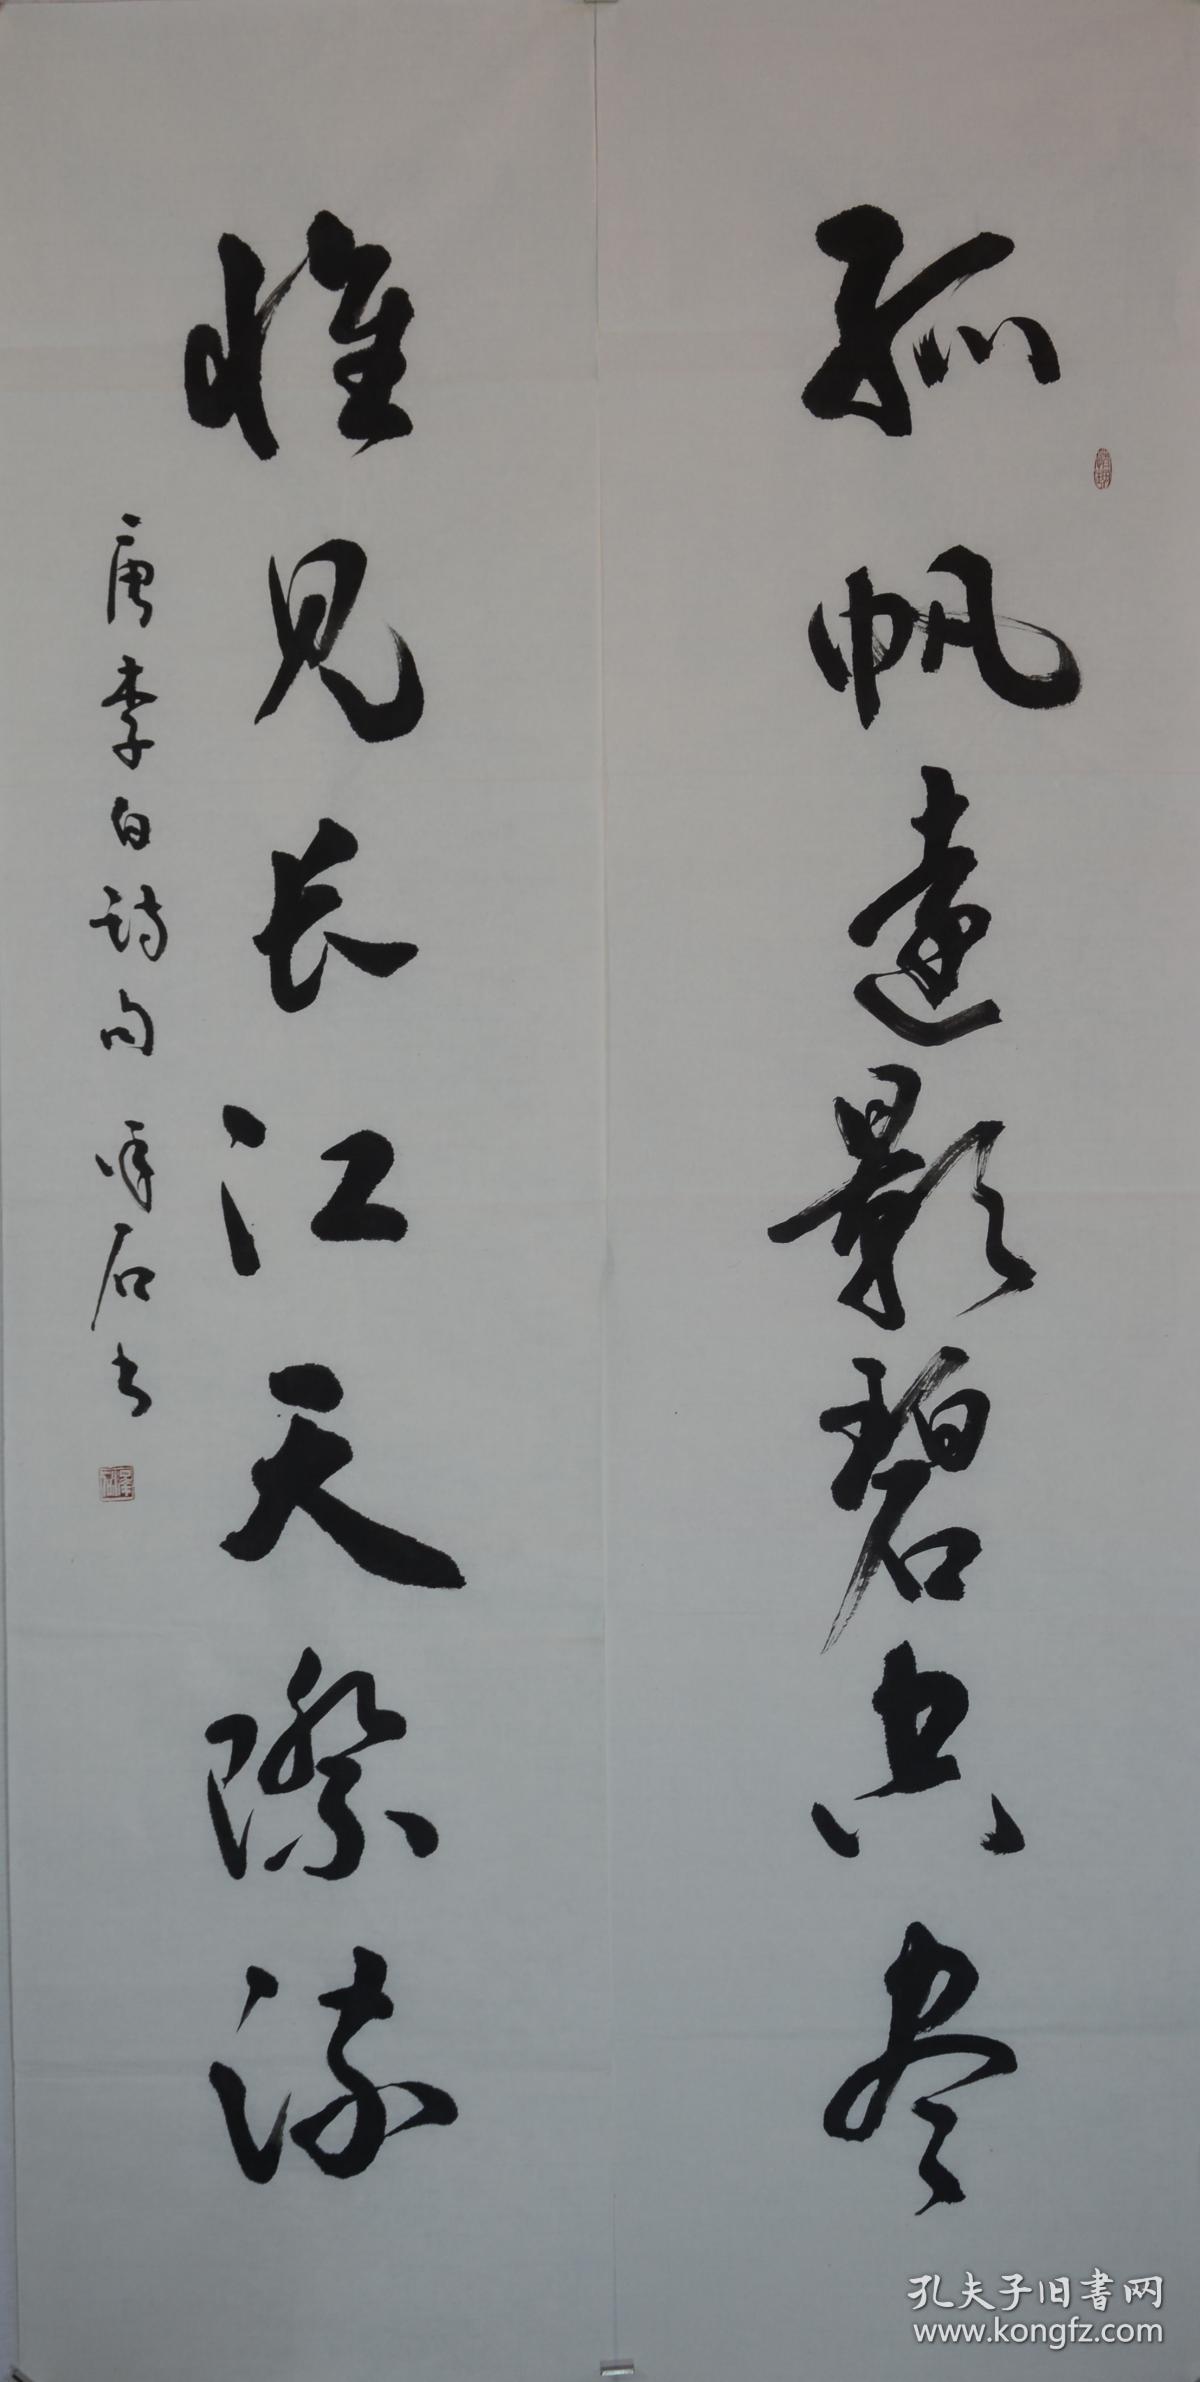 孤帆远影碧空尽
惟见长江天际流
唐李白诗句 峰石书
孔夫子旧書网
www.kongfz.com